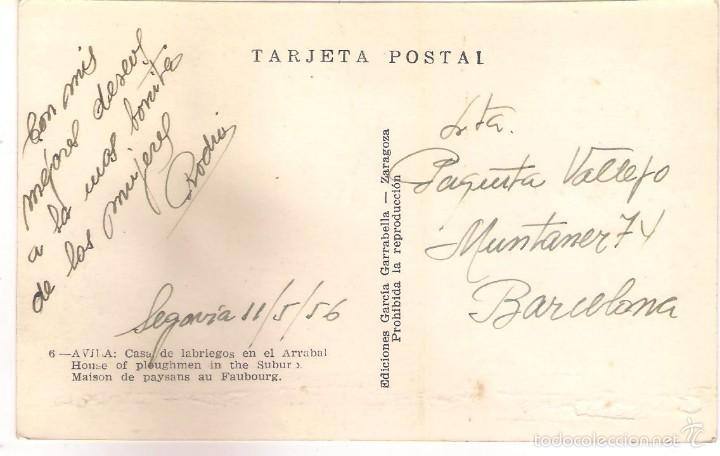 TARJETA POSTAL
Con mis
mejores deseos
a la mas bonita
de las mujeres
Segovia 11/5/56
6 — AVILA: Casa de labriegos en el Arrabal
House of ploughmen in the Suburb.
Maison de paysans au Faubourg.
Ediciones García Garrabella — Zaragoza
Prohibida la reproducción
Srta.
Paquita Vallejo
Muntaner 74
Barcelona
todocoleccion.net